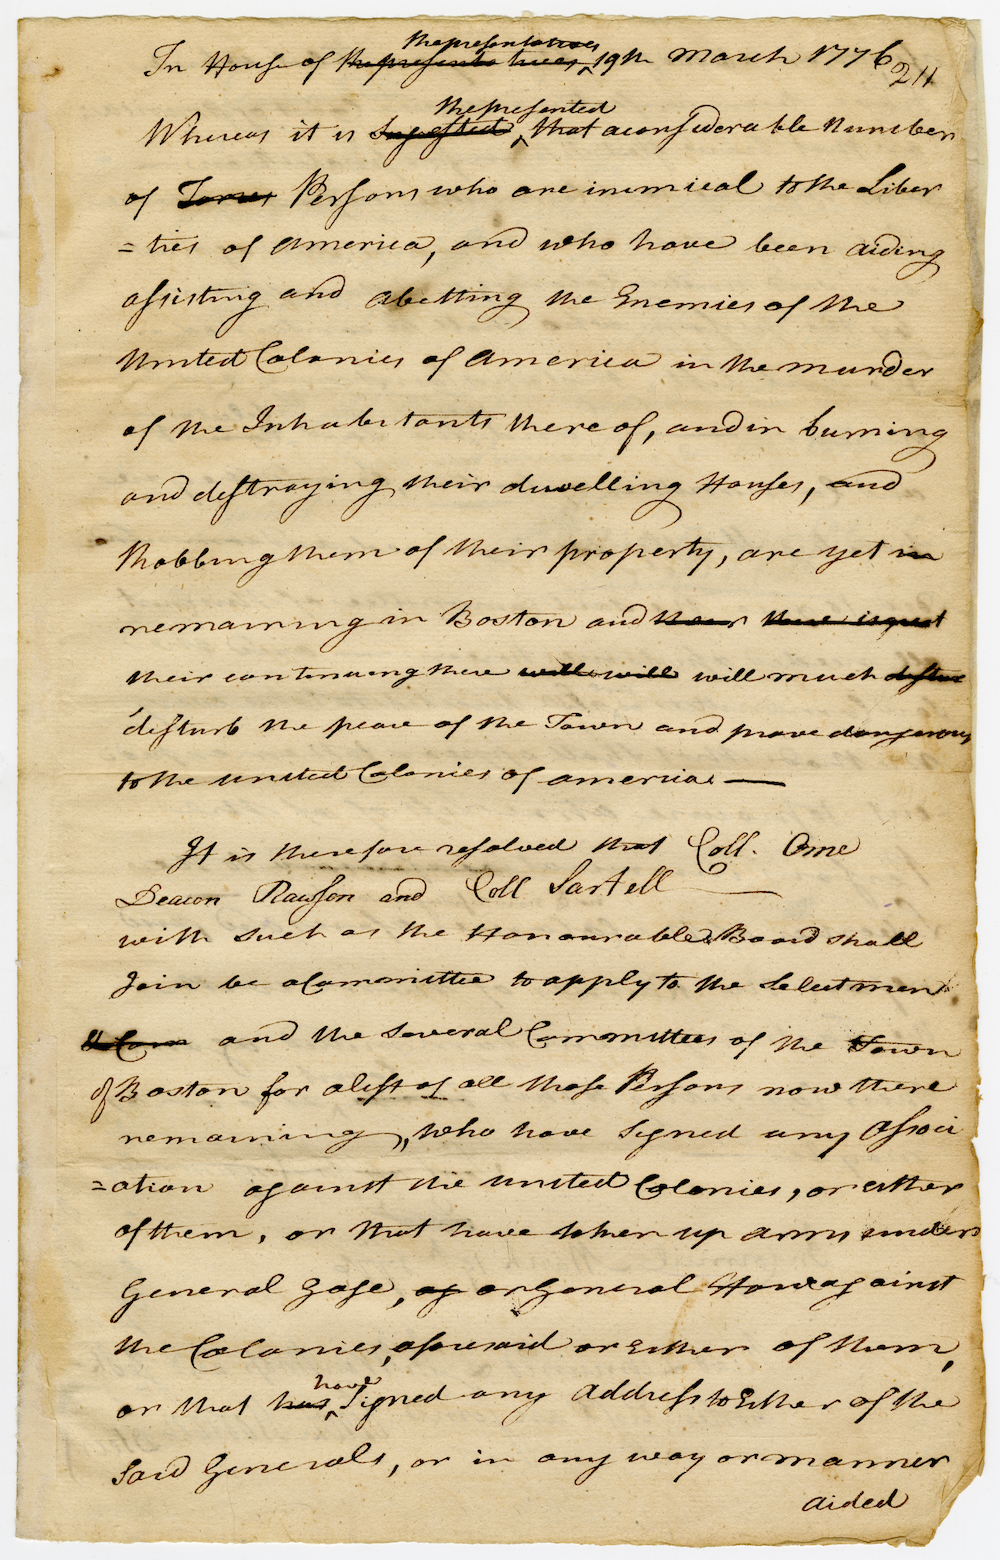 In House of Representa tives Representatives 19th March 1776
211
Whereas it is Sugested Represented that a considerable Number
of Tories Persons who are inimical to the Liber
=ties of America, and who have been aiding
assisting and abetting the Enemies of the
United Colonies of America in the murder
of the Inhabitants there of, and in burning
and destroying their dwelling Houses, and
Robbing them of their property, are yet in
remaining in Boston and
their continuing there will will will much distur
disturb the peace of the Town and prove dangerous
to the united Colonies of america —
It is therefore resolved that Coll. Orne
Deacon Rawson and Coll Sartell
with such as the Honourable Board shall
Join be a Committee to apply to the Selectmen
and the several Committees of the Town
of Boston for a list of all those Persons now there
remaining, who have signed any Associ
=ation against the united Colonies, or either
of them, or that have taken up arms under
General Gage, or General Howe against
the Colonies, aforesaid or Either of them,
or that has have Signed any Address to Either of the
said Generals, or in any way or manner
aided